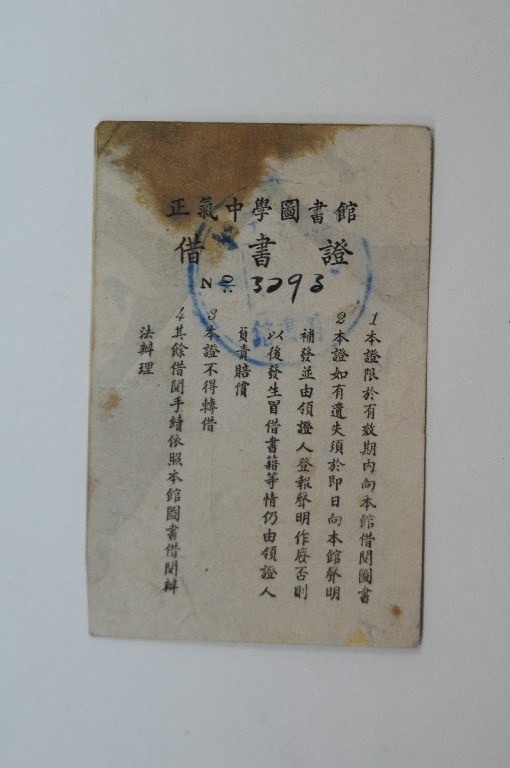 正氣中學圖書館
借書證
No. 3293
1本證限於有效期內向本館借閱圖書
2本證如有遺失須於即日向本館聲明
補發並由領證人登報聲明作廢否則
以後發生冒借書籍等情仍由領證人
負責賠償
3本證不得轉借
4其餘借閱手續依照本館圖書借閱辦
法辦理